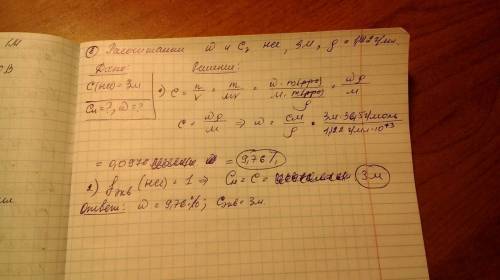 ② Рассчитаем ω и Cэ HCl, 3М, ρ = 1,122 г/мл.
Дано: Решение:
C(HCl) = 3М
Cн = ?, ω = ?
1) C = n/V = m/MV = ω·m(р-ра)/(M·m(р-ра)/ρ) = ωρ/M
C = ωρ/M ⇒ ω = CM/ρ = 3М·36,5 г/моль / 1,122 г/мл·10⁺³
= 0,0976 = 9,76%
2) fэкв (HCl) = 1 ⇒ Cн = C = 3М
Ответ: ω = 9,76%; Cэкв = 3М